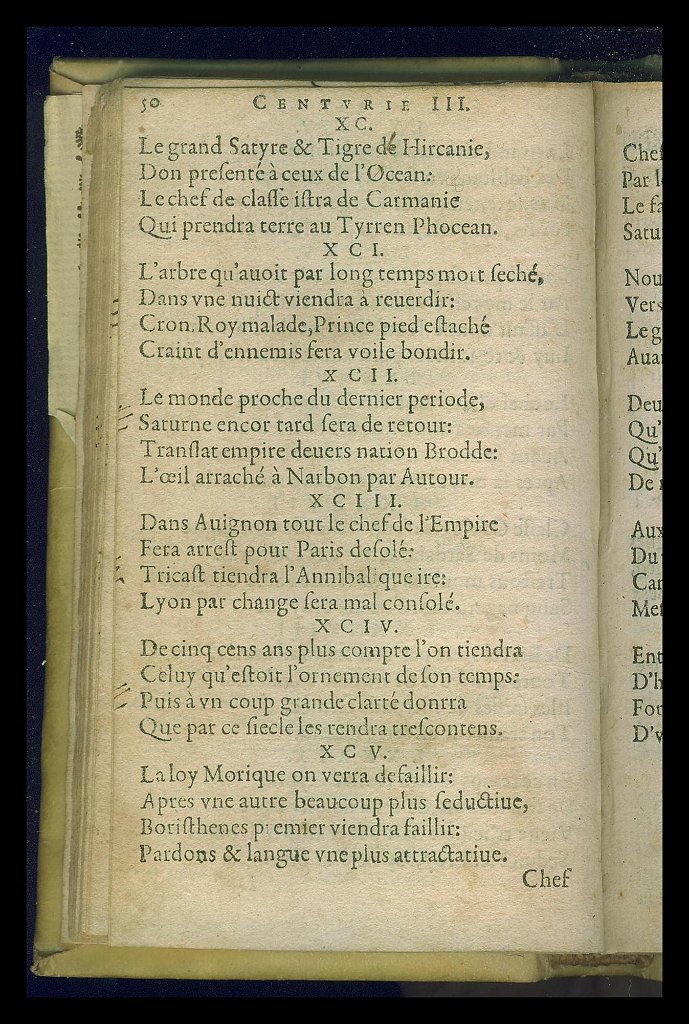 50 CENTVRIE III.
XC.
Le grand Satyre & Tigre de Hircanie,
Don preſenté à ceux de l'Ocean:
Le chef de claſſe iſtra de Carmanie
Qui prendra terre au Tyrren Phocean.
XCI.
L'arbre qu'auoit par long temps mort ſeché,
Dans vne nuict viendra à reuerdir:
Cron. Roy malade, Prince pied eſtaché
Craint d'ennemis fera voile bondir.
XCII.
Le monde proche du dernier periode,
Saturne encor tard ſera de retour:
Tranſlat empire deuers nation Brodde:
L'œil arraché à Narbon par Autour.
XCIII.
Dans Auignon tout le chef de l'Empire
Fera arreſt pour Paris deſolé:
Tricaſt tiendra l'Annibalique ire:
Lyon par change ſera mal conſolé.
XCIV.
De cinq cens ans plus compte l'on tiendra
Celuy qu'eſtoit l'ornement de ſon temps:
Puis à vn coup grande clarté donrra
Que par ce ſiecle les rendra treſcontens.
XCV.
La loy Morique on verra defaillir:
Apres vne autre beaucoup plus ſeductiue,
Boriſthenes premier viendra faillir:
Pardons & langue vne plus attractatiue.
Chef
Chef
Par l
Le fa
Satu
Nou
Vers
Le g
Auan
Deu
Qu'
Qu'
De
Aux
Du
Car
Meſ
Ent
D'h
For
D'v